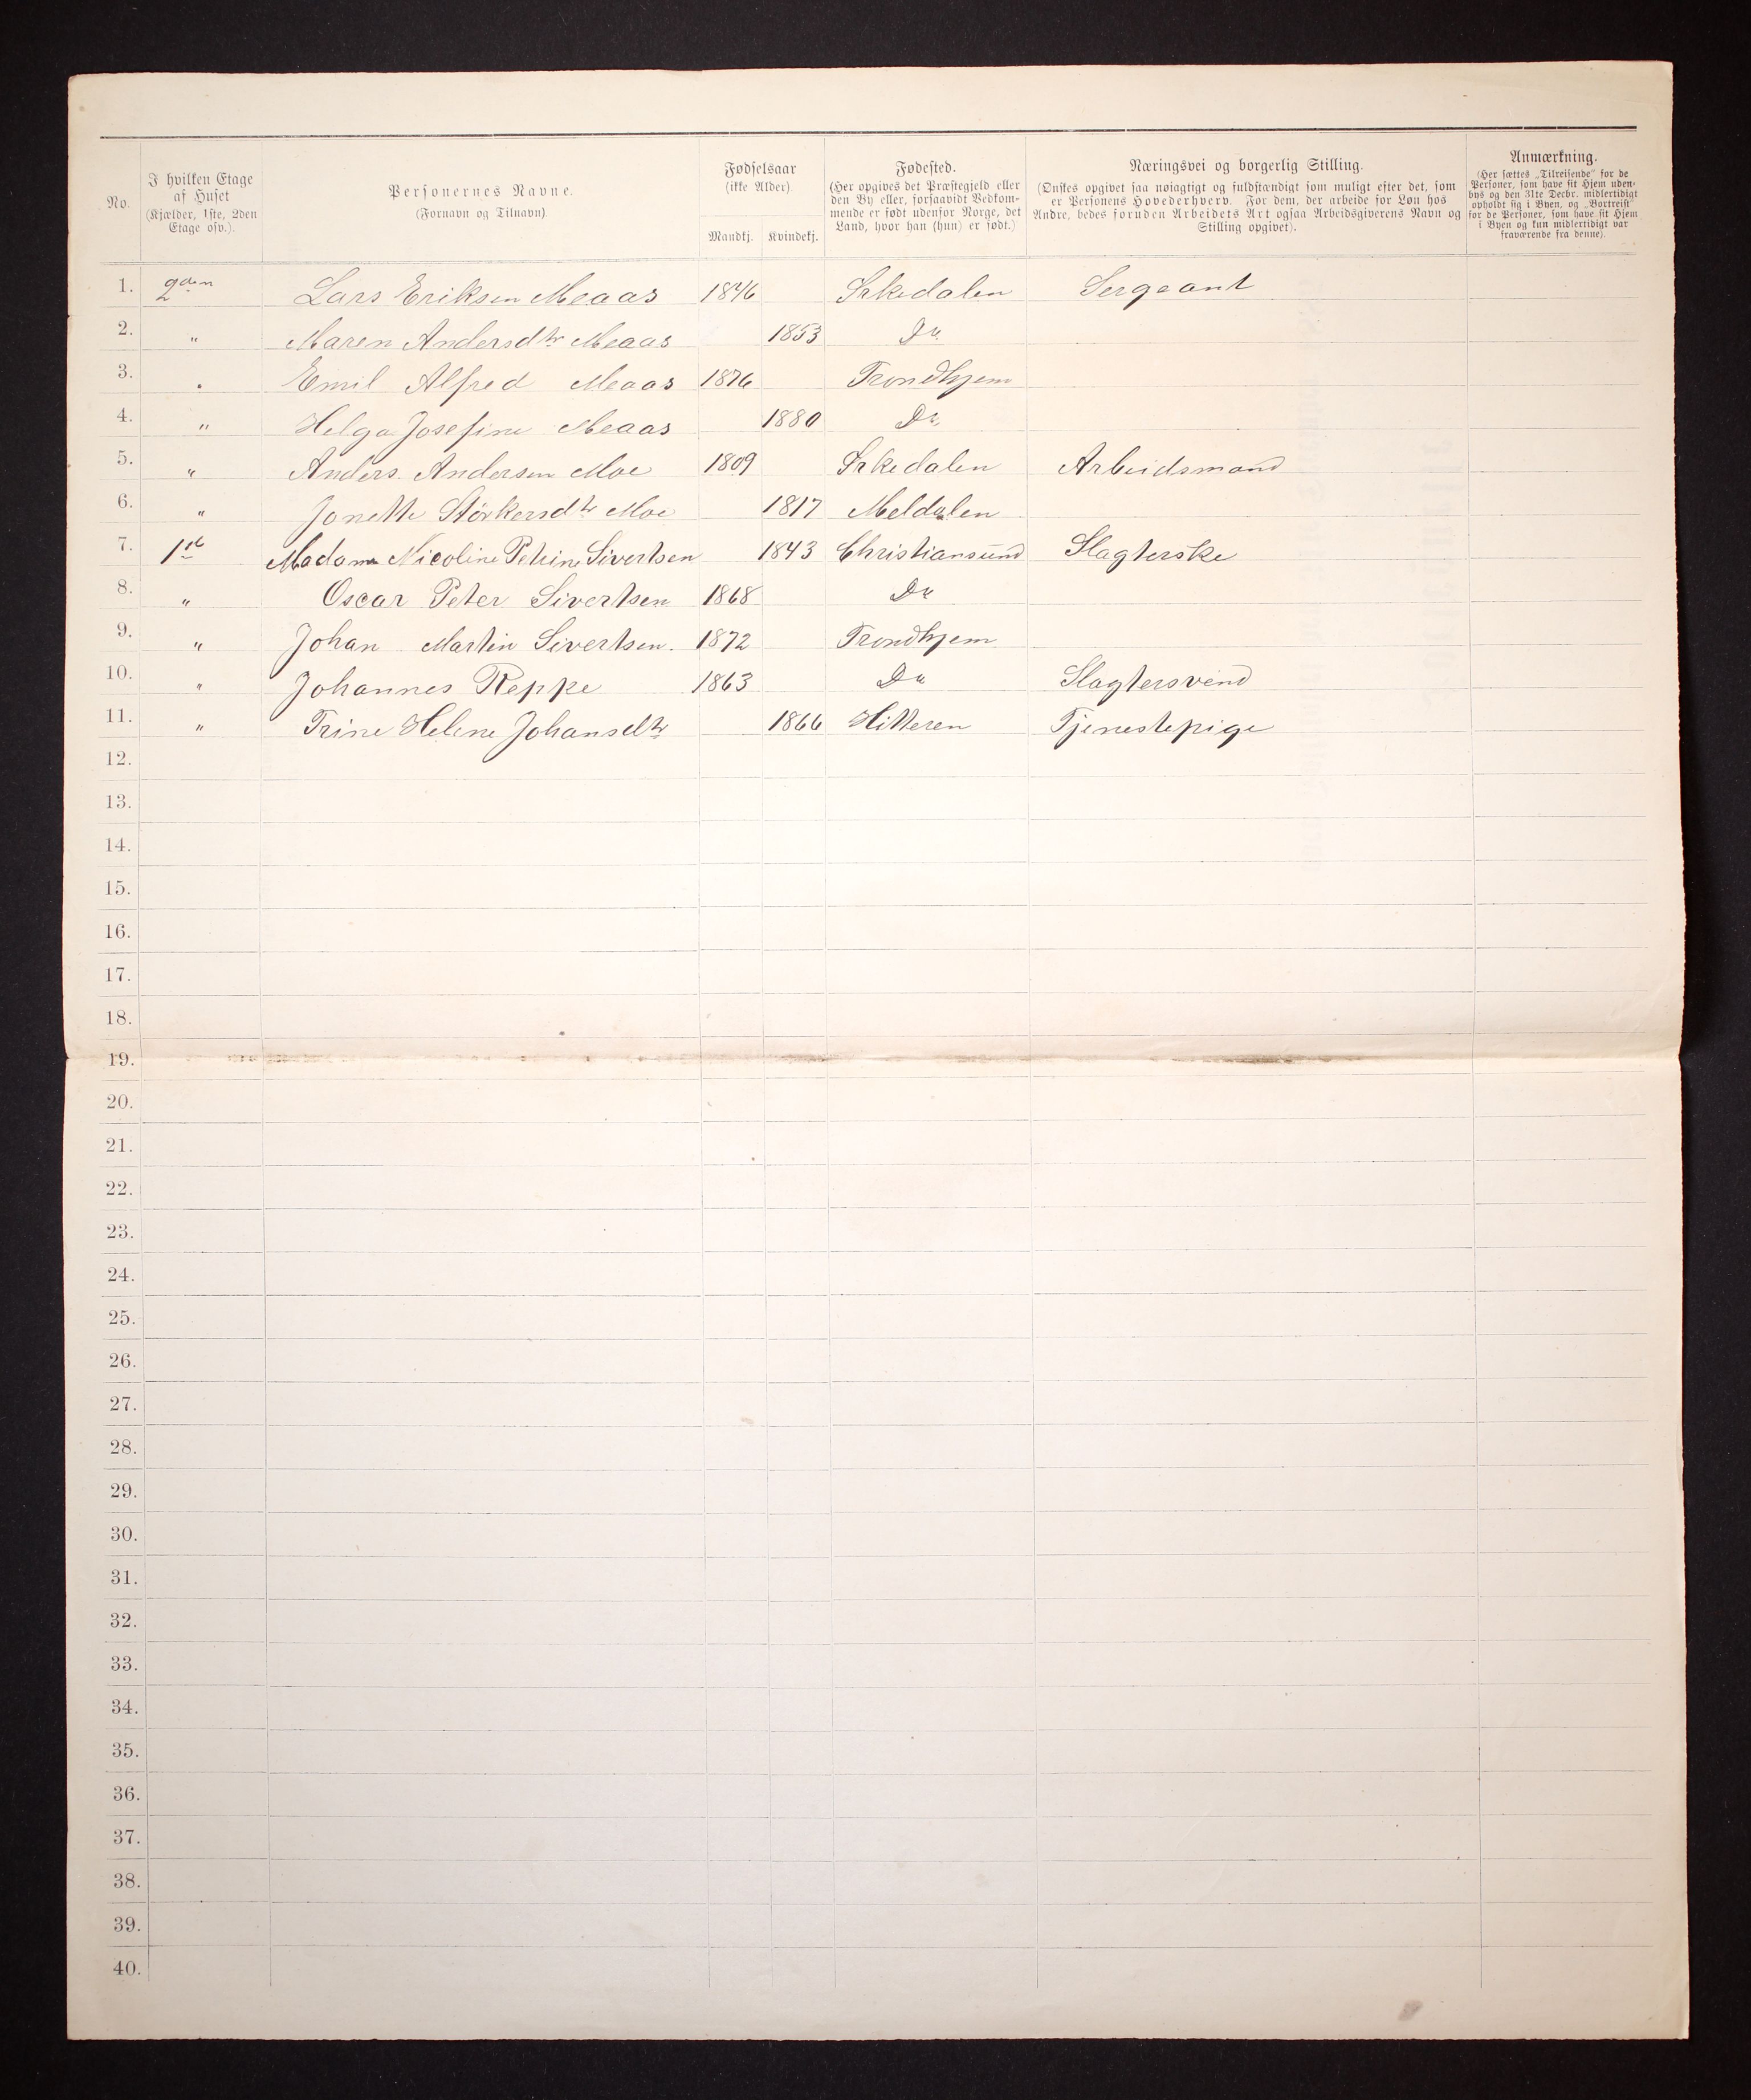 No.
I hvilken Etage
af Huset
(Kjælder, 1ste, 2den
Etage osv.).
Personernes Navne.
(Fornavn og Tilnavn).
Fødselsaar
(ikke Alder)
Mandkj. Kvindekj.
Fødested.
(Her opgives det Præstegjeld eller
den By eller, forsaavidt Vedkom-
mende er født udenfor Norge, det
Land, hvor han (hun) er født.)
Næringsvei og borgerlig Stilling.
(Ønskes opgivet saa nøiagtigt og fuldstændigt som muligt efter det, som
er Personens Hovederhverv. For dem, der arbeide for Løn hos
Andre, bedes foruden Arbeidets Art ogsaa Arbeidsgiverens Navn og
Stilling opgivet).
Anmærkning.
(Her sættes „Tilreisende" for de
Personer, som have sit Hjem uden-
bys og den 31te Decbr. midlertidigt
opholdt sig i Byen, og „Bortreist"
for de Personer, som have sit Hjem
i Byen og kun midlertidigt var
fraværende fra denne).
1. 2den Lars Eriksen Meaas 1846 Srkedalen Sergeant
2. " Maren Andersdtr Meaas 1853 Do
3. " Emil Alfred Meaas 1876 Trondhjem
4. " Helga Josefine Meaas 1880 Do
5. " Anders Andersen Moe 1809 Srkedalen Arbeidsmand
6. " Jonette Störkersdtr Moe 1817 Meldalen
7. 1ste Madam Nicoline Petrine Sivertsen 1843 Christiansund Slagterske
8. " Oscar Peter Sivertsen 1868 Do
9. " Johan Martin Sivertsen. 1872 Trondhjem
10. " Johannes Reppe 1863 Do Slagtersvend
11. " Trine Helene Johansdtr 1866 Hitteren Tjenestepige
12.
13.
14.
15.
16.
17.
18.
19.
20.
21.
22.
23.
24.
25.
26.
27.
28.
29.
30.
31.
32.
33.
34.
35.
36.
37.
38.
39.
40.